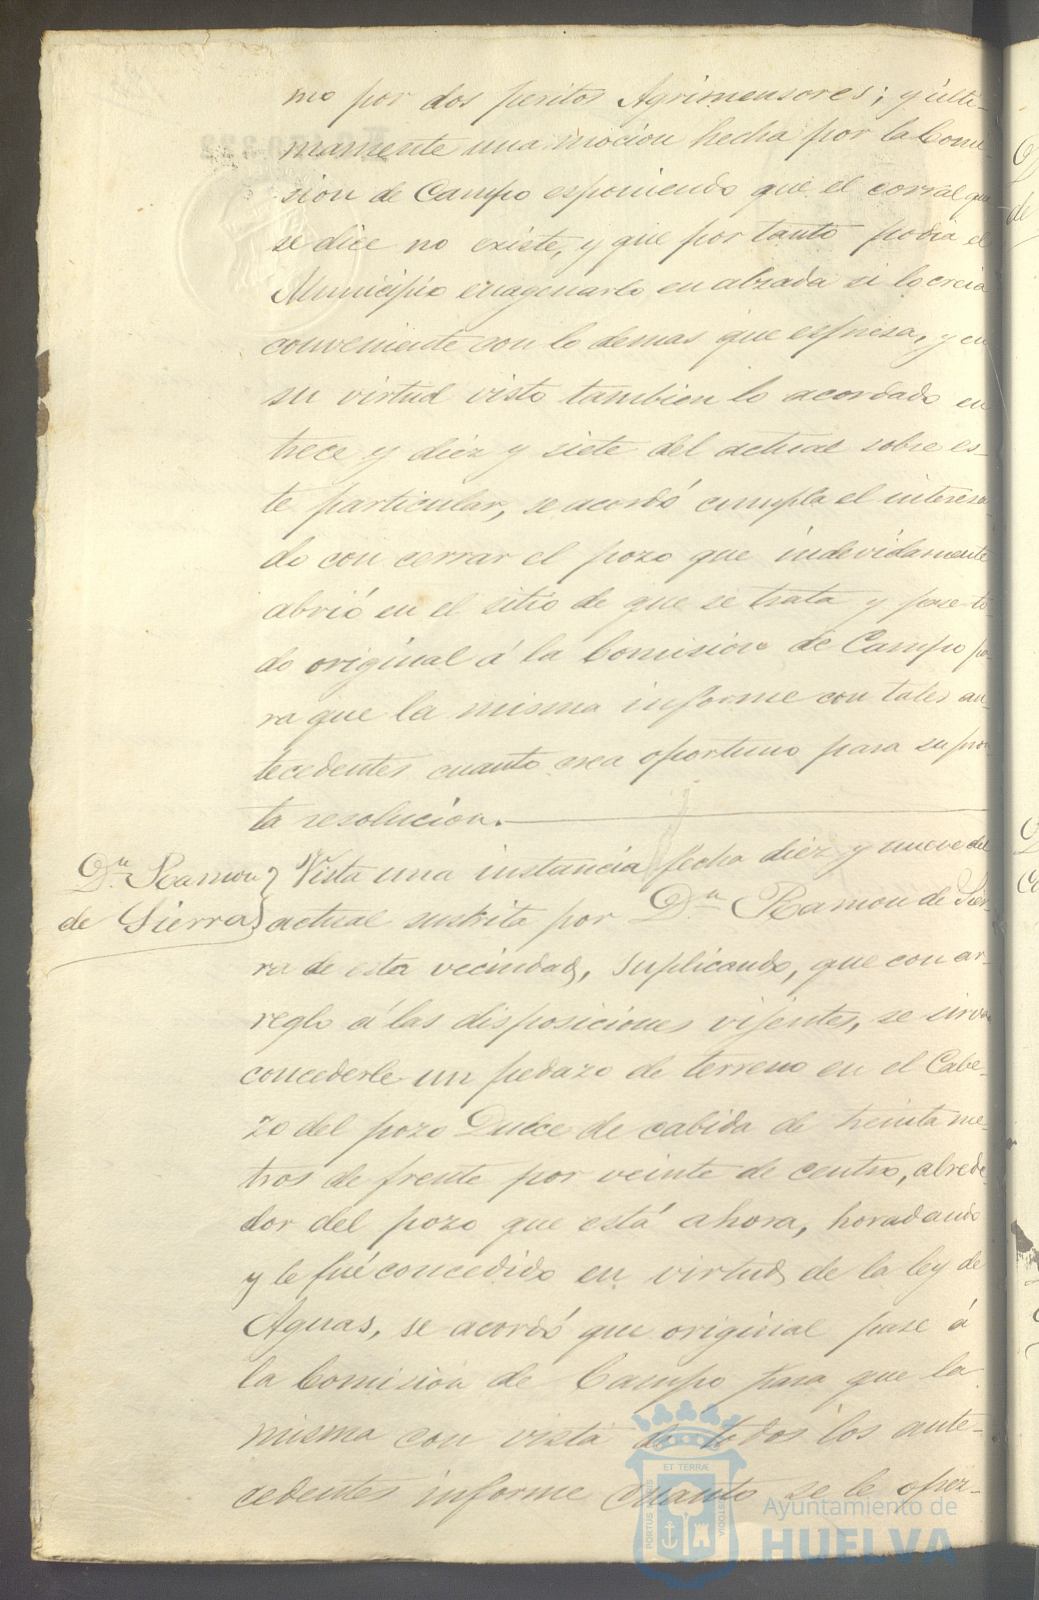 mo por dos peritos Agrimensores; y últi-
mamente una mocion hecha por la Comi-
sion de Campo esponiendo que el corral que
se dice no existe, y que por tanto podia el
Municipio enagenarlo en alzada si lo creia
conveniente con lo demas que espresa, y en
su virtud visto tambien lo acordado en
trece y diez y siete del actual sobre es-
te particular, se acordó cumpla el interesa-
do con cerrar el pozo que indevidamente
abrió en el sitio de que se trata y pase to-
do original á la Comision de Campo pa-
ra que la misma informe con tales an-
tecedentes cuanto crea oportuno para su pron-
ta resolucion.
Dn. Ramon
de Sierra
Vista una instancia fecha diez y nueve del
actual suscrita por Dn. Ramon de Sier-
ra de esta vecindad, suplicando, que con ar-
reglo á las disposiciones vijentes, se sirva
concederle un pedazo de terreno en el Cabe-
zo del pozo Dulce de cabida de treinta me-
tros de frente por veinte de centro, alrede-
dor del pozo que está ahora, horadando
y le fué concedido en virtud de la ley de
Aguas, se acordó que original pase á
la Comision de Campo para que la
misma con vista de todos los ante-
cedentes informe cuanto se le ofrez-
PORTUS MARIS
ET TERRÆ
CUSTODIA
Ayuntamiento de
HUELVA